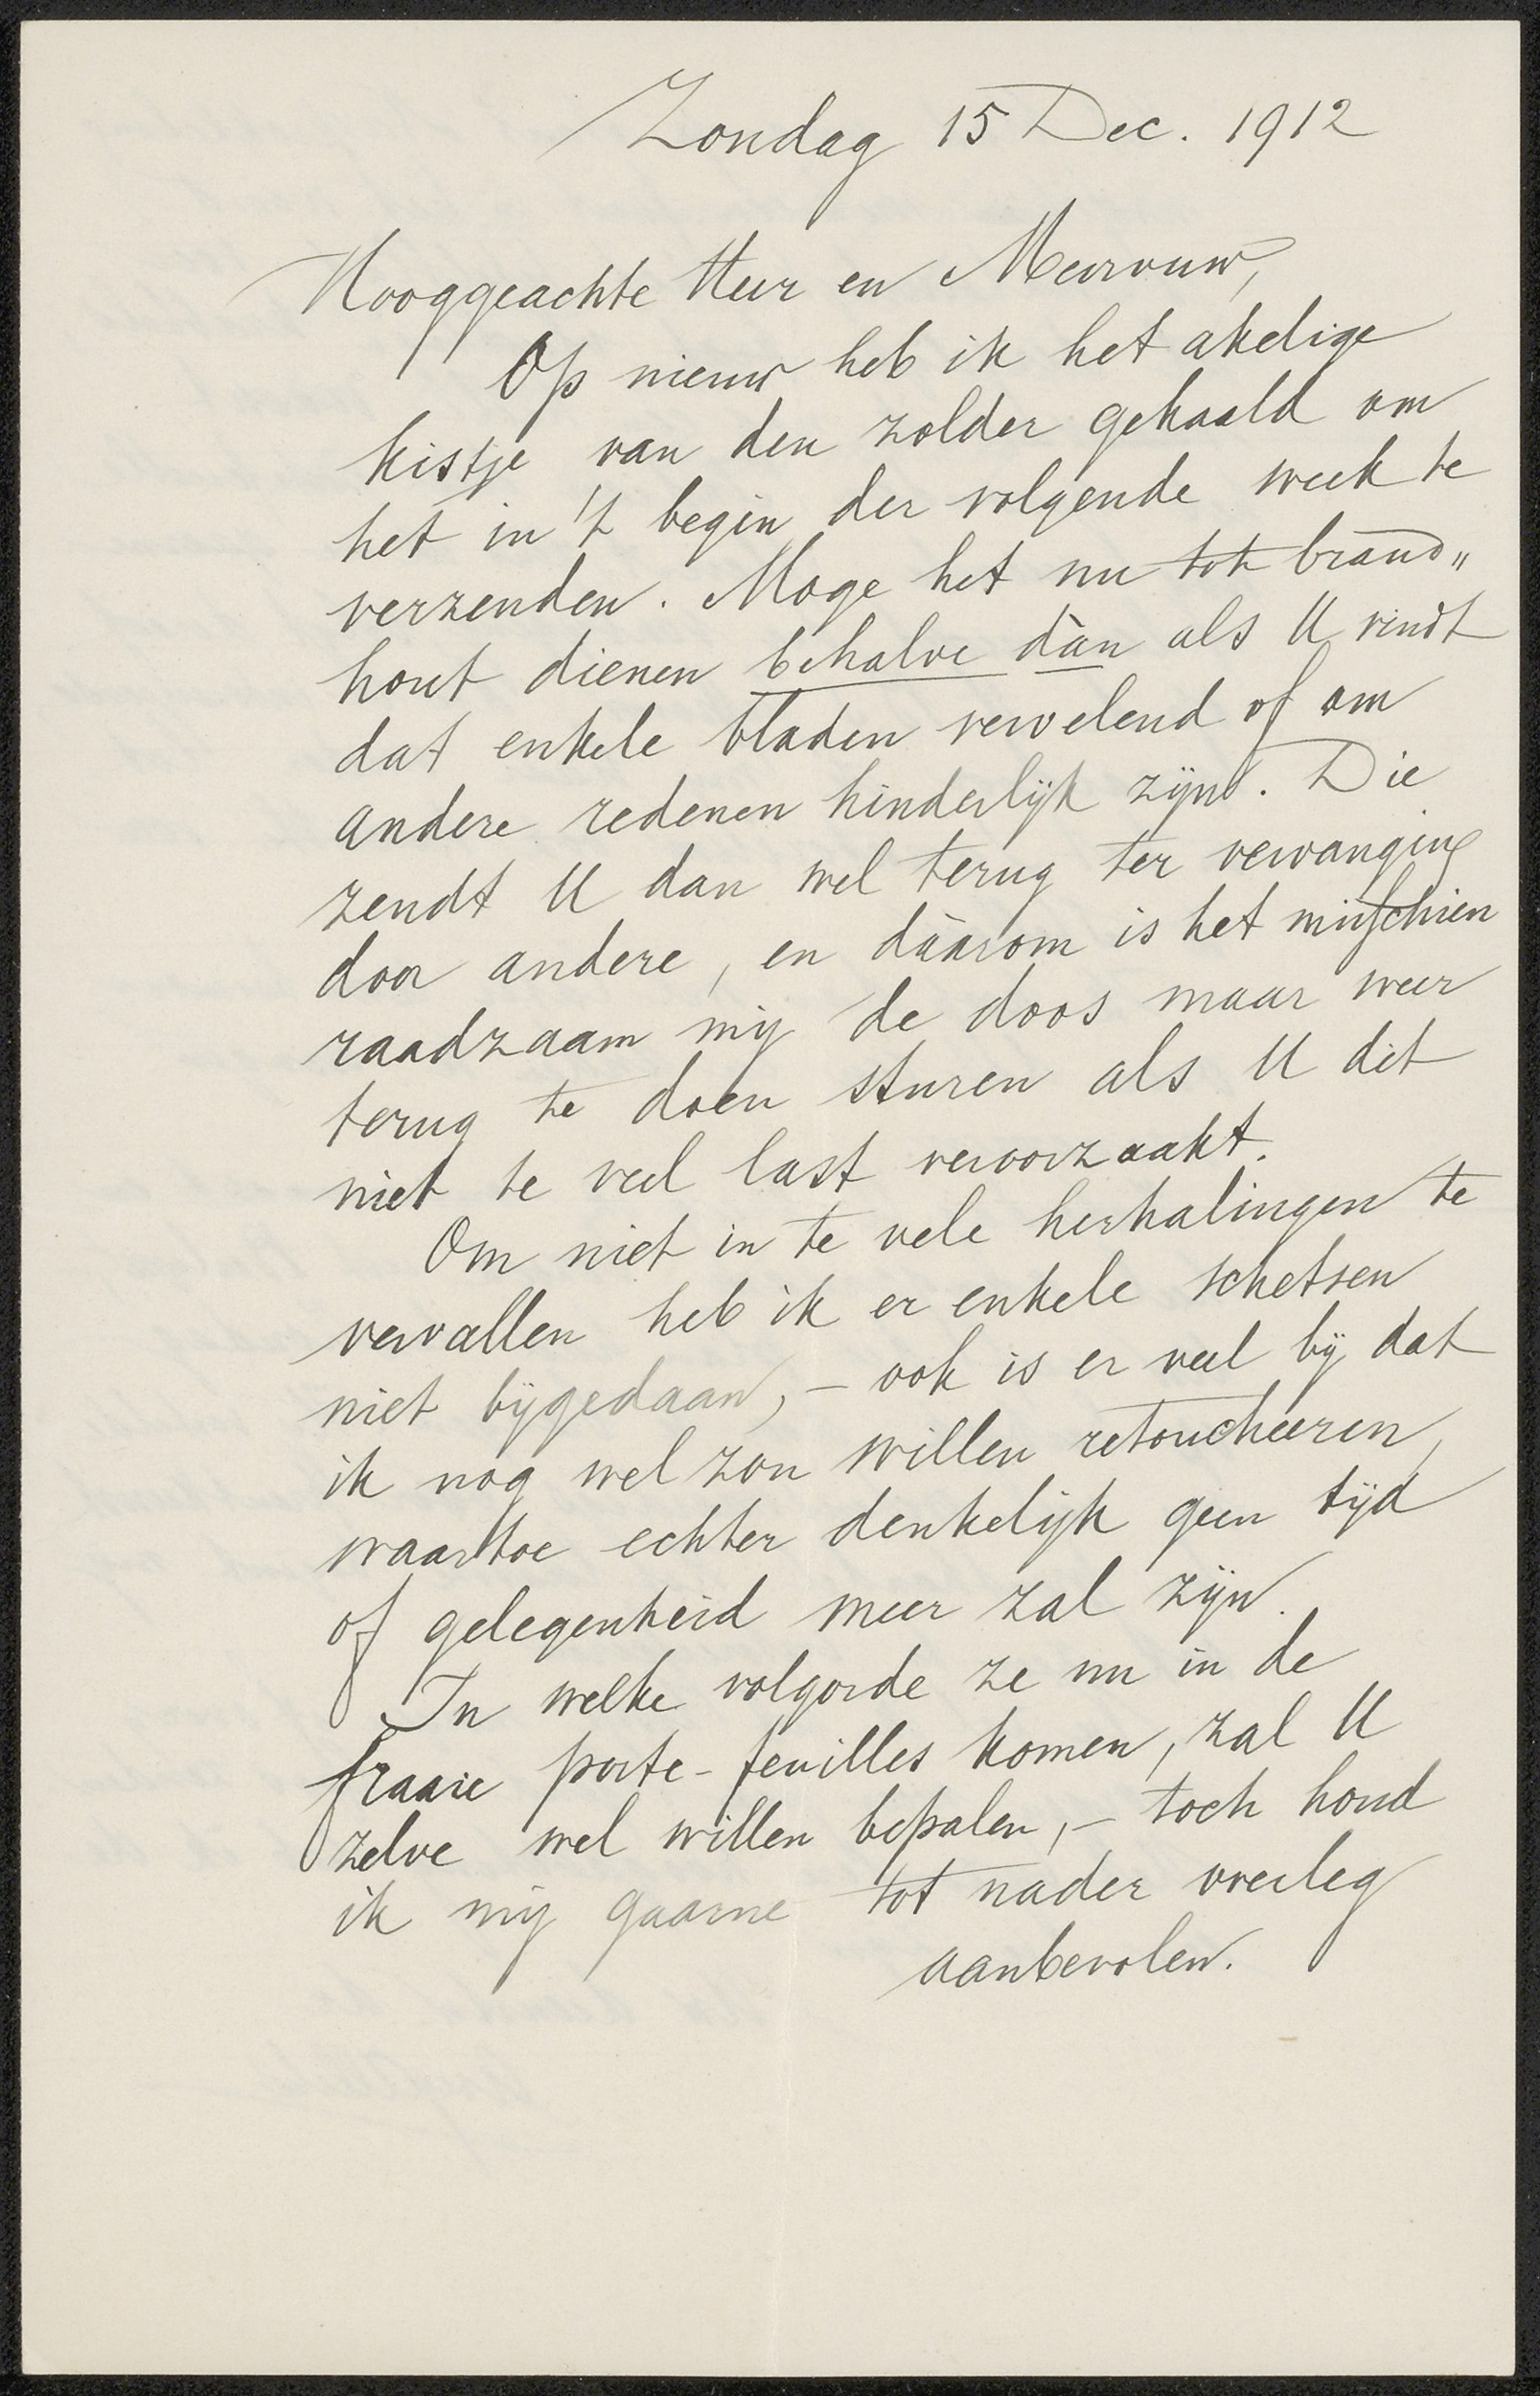 Zondag 15 Dec. 1912
Hooggeachte Heer en Mevrouw,
Op nieuw heb ik het akelige
kistje van den zolder gehaald om
het in 't begin der volgende week te
verzenden. Moge het nu tot brand„
hout dienen behalve dàn als U vindt
dat enkele bladen vervelend of om
andere redenen hinderlijk zijn. Die
zendt U dan wel terug ter vervanging
door andere, en dààrom is het misschien
raadzaam mij de doos maar weer
terug te doen sturen als U dit
niet te veel last veroorzaakt.
Om niet in te vele herhalingen te
vervallen heb ik er enkele schetsen
niet bijgedaan, – ook is er veel bij dat
ik nog wel zou willen retoucheeren,
waartoe echter denkelijk geen tijd
of gelegenheid meer zal zijn.
In welke volgorde ze nu in de
fraaie porte-feuilles komen, zal U
zelve wel willen bepalen, – toch houd
ik mij gaarne tot nader overleg
aanbevolen.